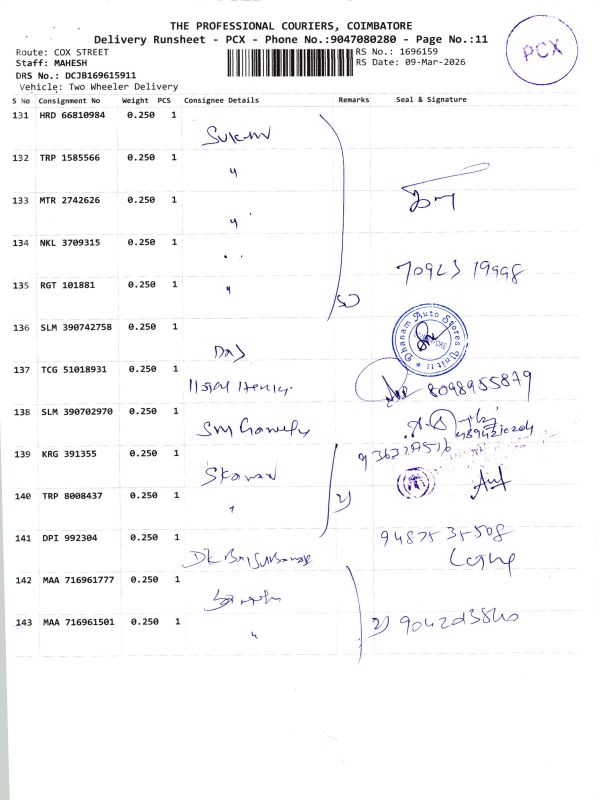 THE PROFESSIONAL COURIERS, COIMBATORE
Delivery Runsheet - PCX - Phone No.:9047080280 - Page No.:11
PCX
Route: COX STREET
RS No.: 1696159
Staff: MAHESH
RS Date: 09-Mar-2026
DRS No.: DCJB169615911
Vehicle: Two Wheeler Delivery
S No Consignment No Weight PCS Consignee Details Remarks Seal & Signature
131 HRD 66810984 0.250 1
132 TRP 1585566 0.250 1 "
133 MTR 2742626 0.250 1 "
134 NKL 3709315 0.250 1 "
70923 19998
135 RGT 101881 0.250 1 "
5)
136 SLM 390742758 0.250 1
Dhanam Auto Stores Unit II
137 TCG 51018931 0.250 1
8098955879
138 SLM 390702970 0.250 1
139 KRG 391355 0.250 1
140 TRP 8008437 0.250 1 "
2)
141 DPI 992304 0.250 1
142 MAA 716961777 0.250 1
143 MAA 716961501 0.250 1 "
2)